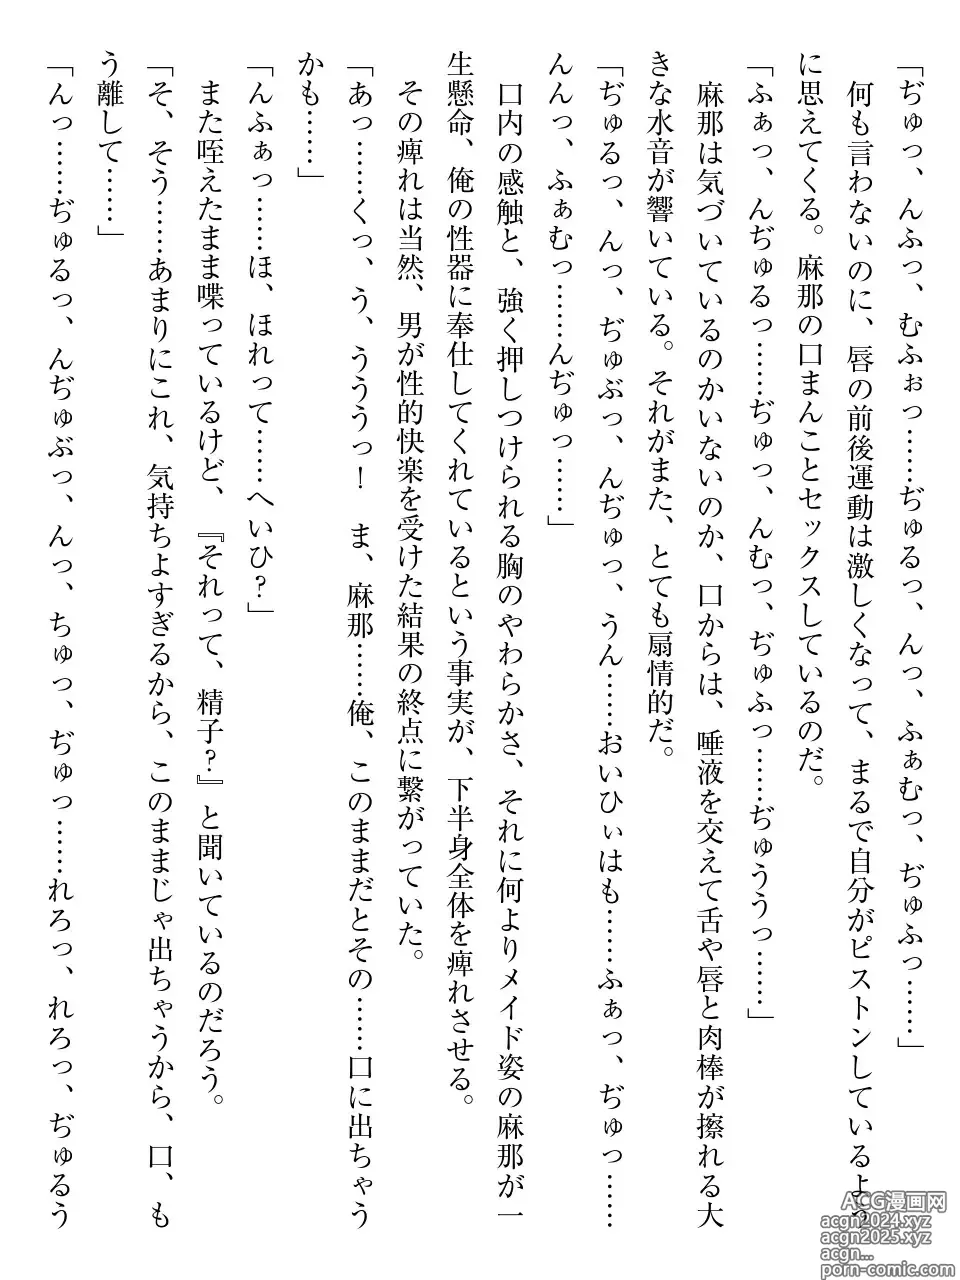 「ぢゅっ、んふっ、むふぉっ……ぢゅるっ、んっ、ふぁむっ、ぢゅふっ……」
何も言わないのに、唇の前後運動は激しくなって、まるで自分がピストンしているよう
に思えてくる。麻那の口まんことセックスしているのだ。
「ふぁっ、んぢゅるっ……ぢゅっ、んむっ、ぢゅふっ……ぢゅううっ……」
麻那は気づいているのかいないのか、口からは、唾液を交えて舌や唇と肉棒が擦れる大
きな水音が響いている。それがまた、とても扇情的だ。
「ぢゅるっ、んっ、ぢゅぶっ、んぢゅっ、うん……おいひぃはも……ふぁっ、ぢゅっ……
んんっ、ふぁむっ……んぢゅっ……」
口内の感触と、強く押しつけられる胸のやわらかさ、それに何よりメイド姿の麻那が一
生懸命、俺の性器に奉仕してくれているという事実が、下半身全体を痺れさせる。
その痺れは当然、男が性的快楽を受けた結果の終点に繋がっていた。
「あっ……くっ、う、うううっ！　ま、麻那……俺、このままだとその……口に出ちゃう
かも……」
「んふぁっ……ほ、ほれって……へいひ？」
また咥えたまま喋っているけど、『それって、精子？』と聞いているのだろう。
「そ、そう……あまりにこれ、気持ちよすぎるから、このままじゃ出ちゃうから、口、も
う離して……」
「んっ……ぢゅるっ、んぢゅぶっ、んっ、ちゅっ、ぢゅっ……れろっ、れろっ、ぢゅるう
ACG漫画网
acgn2024.xyz
acgn2025.xyz
acgn...
porn-comic.com